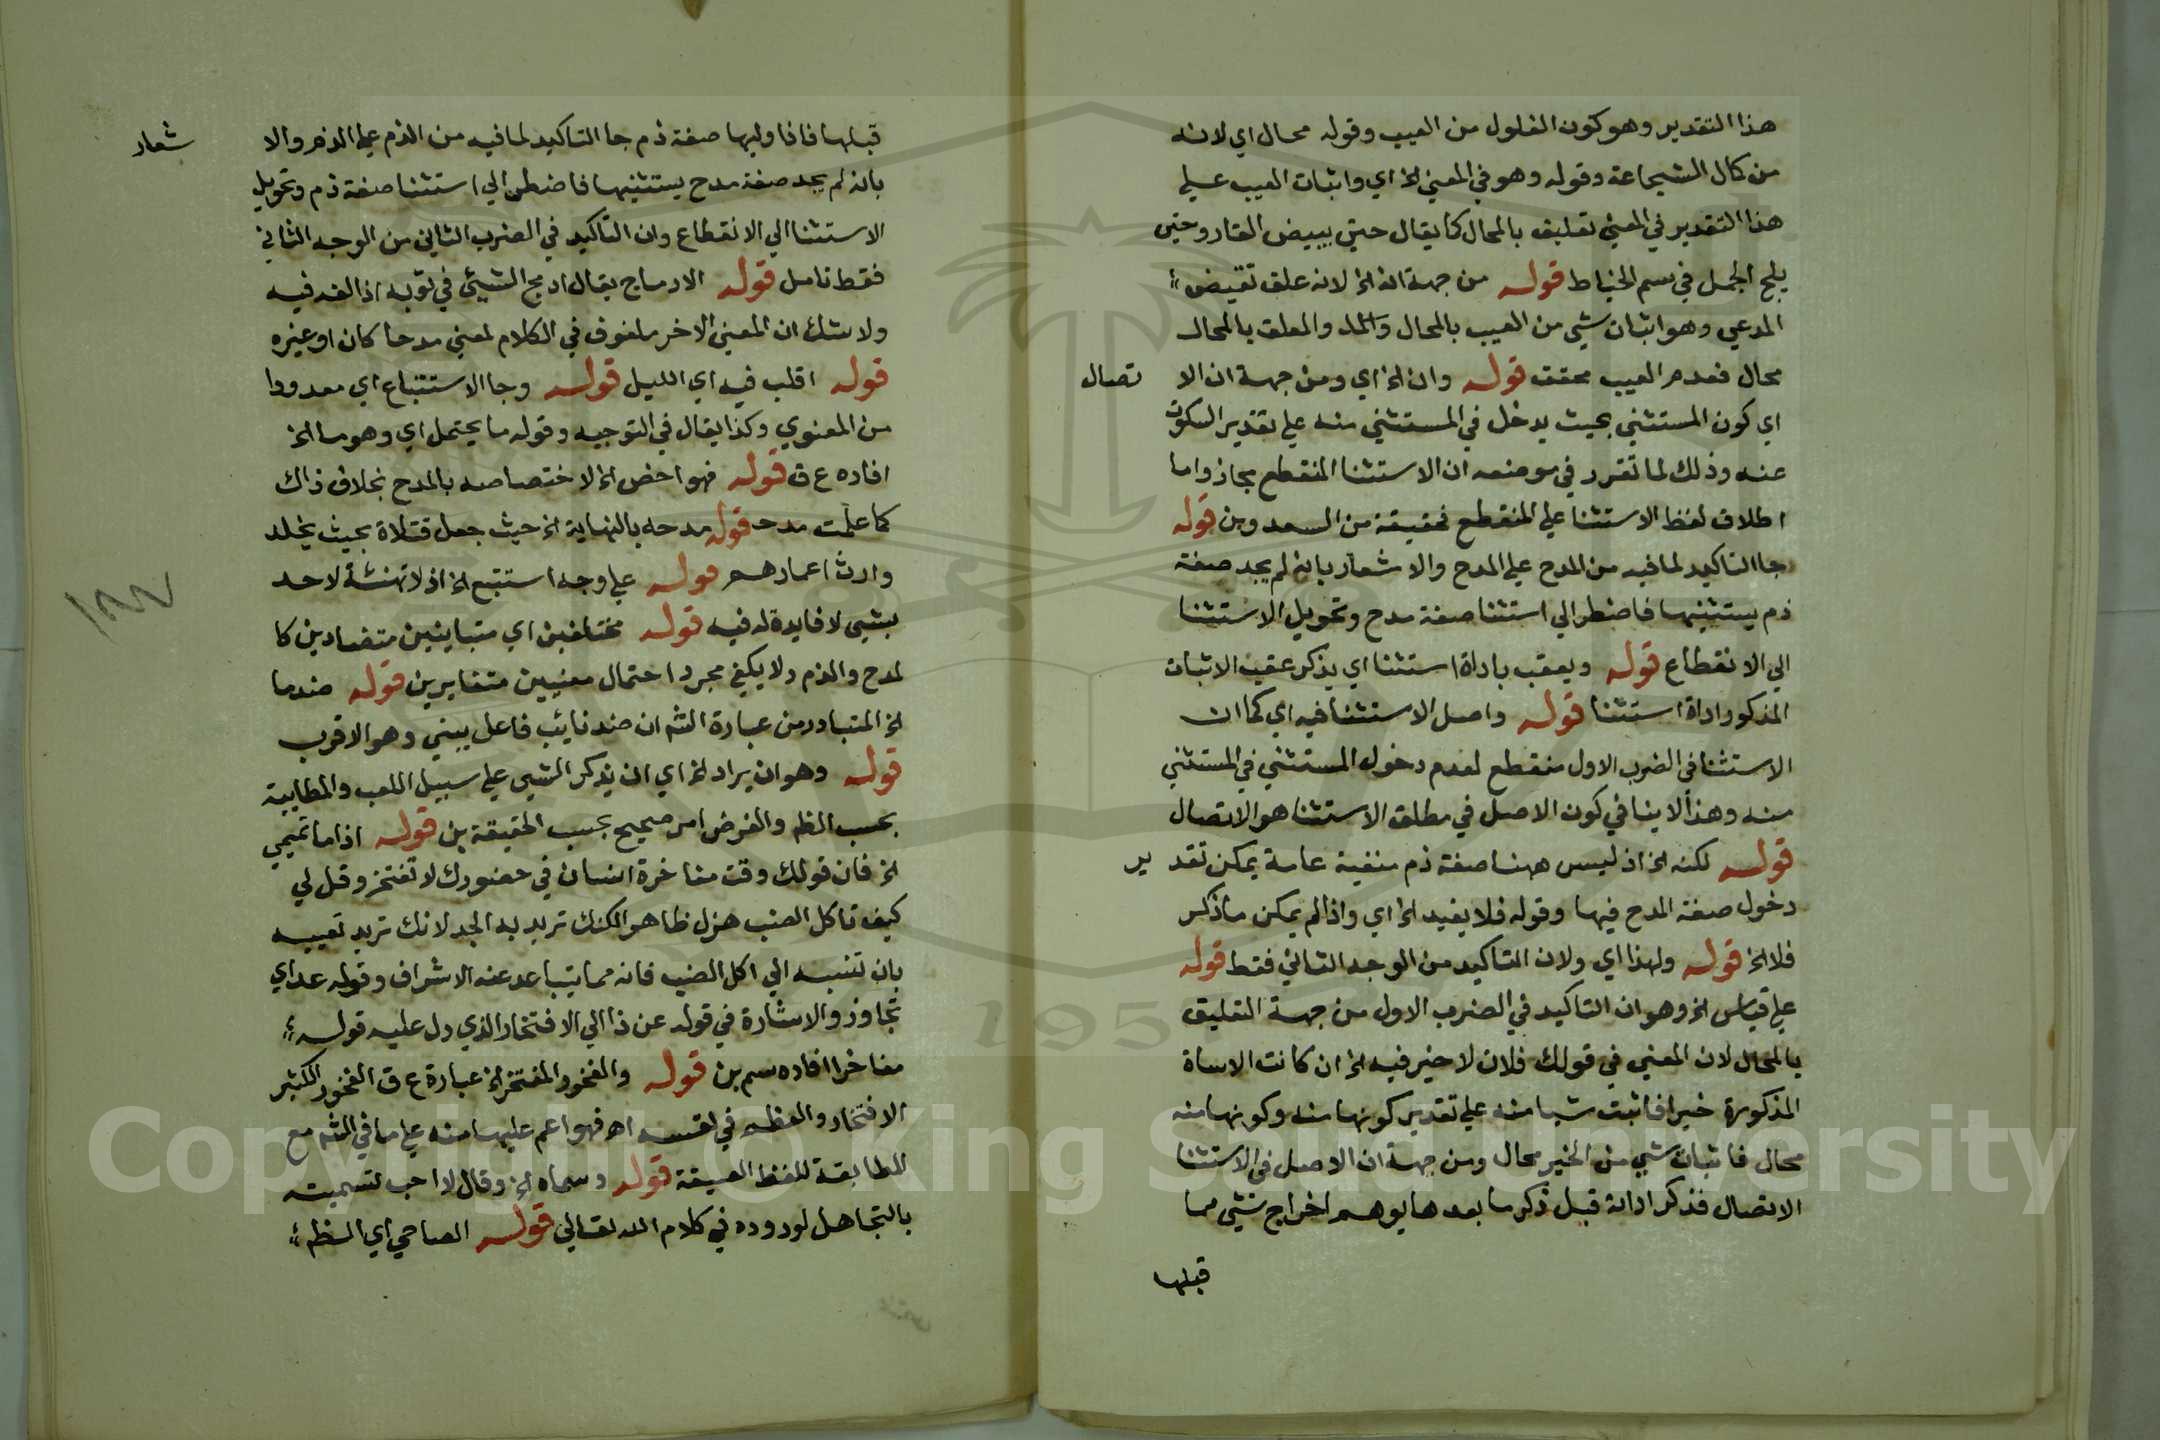 هذا التقدير وهو كون الفلول من العيب وقوله محال اي لانه
من كال الشجاعة وقوله وهو في المعني الخ اي واثبات العيب علي
هذا التقدير في المعني تعليق بالمحال كا يقال حتي يبيض القار وحتي
يلج الجمل في سم الخياط قوله من جهة انه الخ لانه علق نقيض
المدعي وهو اثبات شي من العيب بالمحال والمعلق بالمحال
محال فعدم العيب محقق قوله وان الخ اي ومن جهة ان الا تصال
اي كون المستثني بحيث يدخل في المستثني منه علي تقدير السكوت
عنه وذلك لما تقرر في موضعه ان الاستثنا المنقطع مجاز واما
اطلاق لفظ الاستثنا علي المنقطع فحقيقة من السعد وبن قوله
جا التاكيد لما فيه من المدح علي المدح والاشعار بانه لم يجد صفة
ذم يستثنيها فاضطر الي استثنا صفة مدح وتحويل الاستثنا
الي الانقطاع قوله ويعقب باداة استثنا اي يذكر عقب الاثبات
المذكور اداة استثنا قوله واصل الاستثنا فيه اي كما ان
الاستثنا في الضرب الاول منقطع لعدم دخول المستثني في المستثني
منه وهذا لا ينافي كون الاصل في مطلق الاستثنا هو الاتصال
قوله لكنه الخ اذ ليس هنا صفة ذم منفية عامة يمكن تقد ير
دخول صفة المدح فيها وقوله فلا يفيد الخ اي واذا لم يمكن ما ذكر
فلا الخ قوله ولهذا اي ولان التاكيد من الوجه الثاني فقط قوله
علي قياس الخ وهو ان التاكيد في الضرب الاول من جهة التعليق
بالمحال لان المعني في قولك فلان لا خير فيه الخ ان كانت الاساة
المذكورة خيرا فاثبت شيا منه علي تقدير كونها منه وكونها منه
محال فاثبات شي من الخير محال ومن جهة ان الاصل في الاستثنا
الاتصال فذكر اداته قبل ذكر ما بعدها يوهم اخراج شي مما
قبلها
قبلها فاذا وليها صفة ذم جا التاكيد لما فيه من الذم علي الذم والا شعار
بانه لم يجد صفة مدح يستثنيها فاضطر الي استثنا صفة ذم وتحويل
الاستثنا الي الانقطاع وان التاكيد في الضرب الثاني من الوجه الثاني
فقط تامل قوله الادماج يقال ادمج الشيئ في ثوبه اذا لفه فيه
ولا شك ان المعني الاخر ملفوف في الكلام لمعني مدحا كان او غيره
قوله اقلب فيه اي الليل قوله وجا الاستتباع اي معدودا
من المعنوي وكذا يقال في التوجيه وقوله ما يحتمل اي وهو ما الخ
افاده ع ق قوله فهو اخص الخ لاختصاصه بالمدح بخلاف ذاك
كما علمت مدحـ قوله مدحه بالنهاية الخ حيث جعل قتلاه بحيث يخلد
وارث اعمارهم قوله علي وجه استتبع الخ اذ لا تهنئة لاحد
بشي لا فايدة له فيه قوله مختلفين اي متباينين متضادين كا
لمدح والذم ولا يكفي مجرد احتمال معنيين متغايرين قوله ضدما
الخ المتبادر من عبارة الشم ان ضد نايب فاعل يبني وهو الاقرب
قوله وهو ان يراد الخ اي ان يذكر الشي علي سبيل اللعب والمطايبة
بحسب الظم والغرض امر صحيح بحسب الحقيقة بن قوله اذا ما تميمي
الخ فان قولك وقت مفاخرة انسان في حضورك لا تفتخر وقل لي
كيف تاكل الضب هزل ظاهر الكنك تريد به الجد لانك تريد تعييبه
بان تنسبه الي اكل الضب فانه مما يتباعد عنه الاشراف وقوله عد اي
تجاوز والاشارة في قوله عن ذا الي الافتخار الذي دل عليه قوله
مفاخرا افاده سم بن قوله والفخور المفتخر الخ عبارة ع ق الفخور الكثير
الافتخار والعظم في نفسه اه فهو اعم عليها منه علي ما في الشم مع
المطابقة للفظ الصيغة قوله وسماه الخ وقال لا احب تسميته
بالتجاهل لوروده في كلام الله تعالي قوله الصاحي اي الظم
١٨٧
Copyright © King Saud University
1957